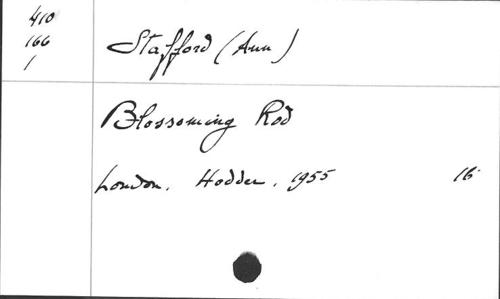 410
166
1
Stafford (Ann)
Blossoming Rod
London. Hodder. 1955 16.